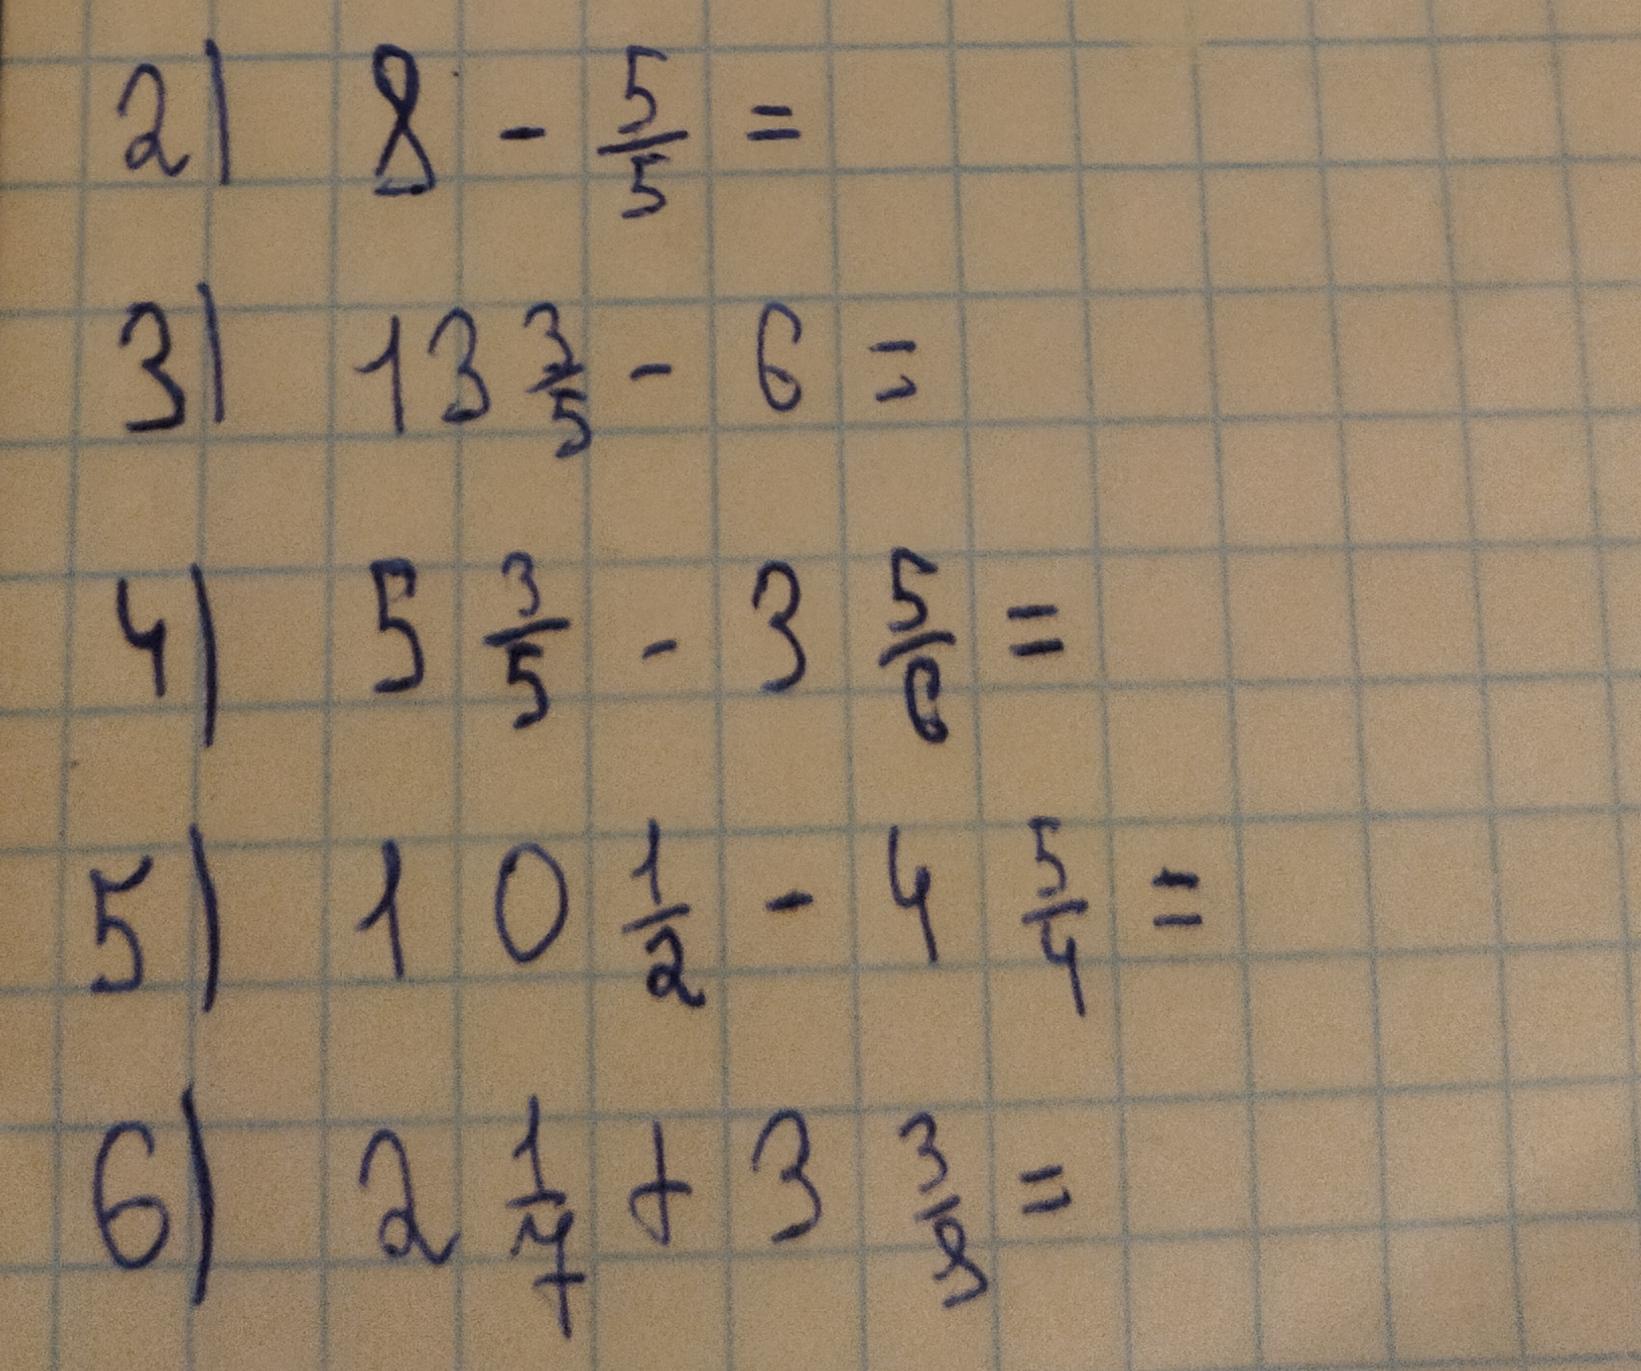 2) 8 - 5/5 =
3) 13 3/5 - 6 =
4) 5 3/5 - 3 5/6 =
5) 10 1/2 - 4 5/4 =
6) 2 1/7 + 3 3/8 =